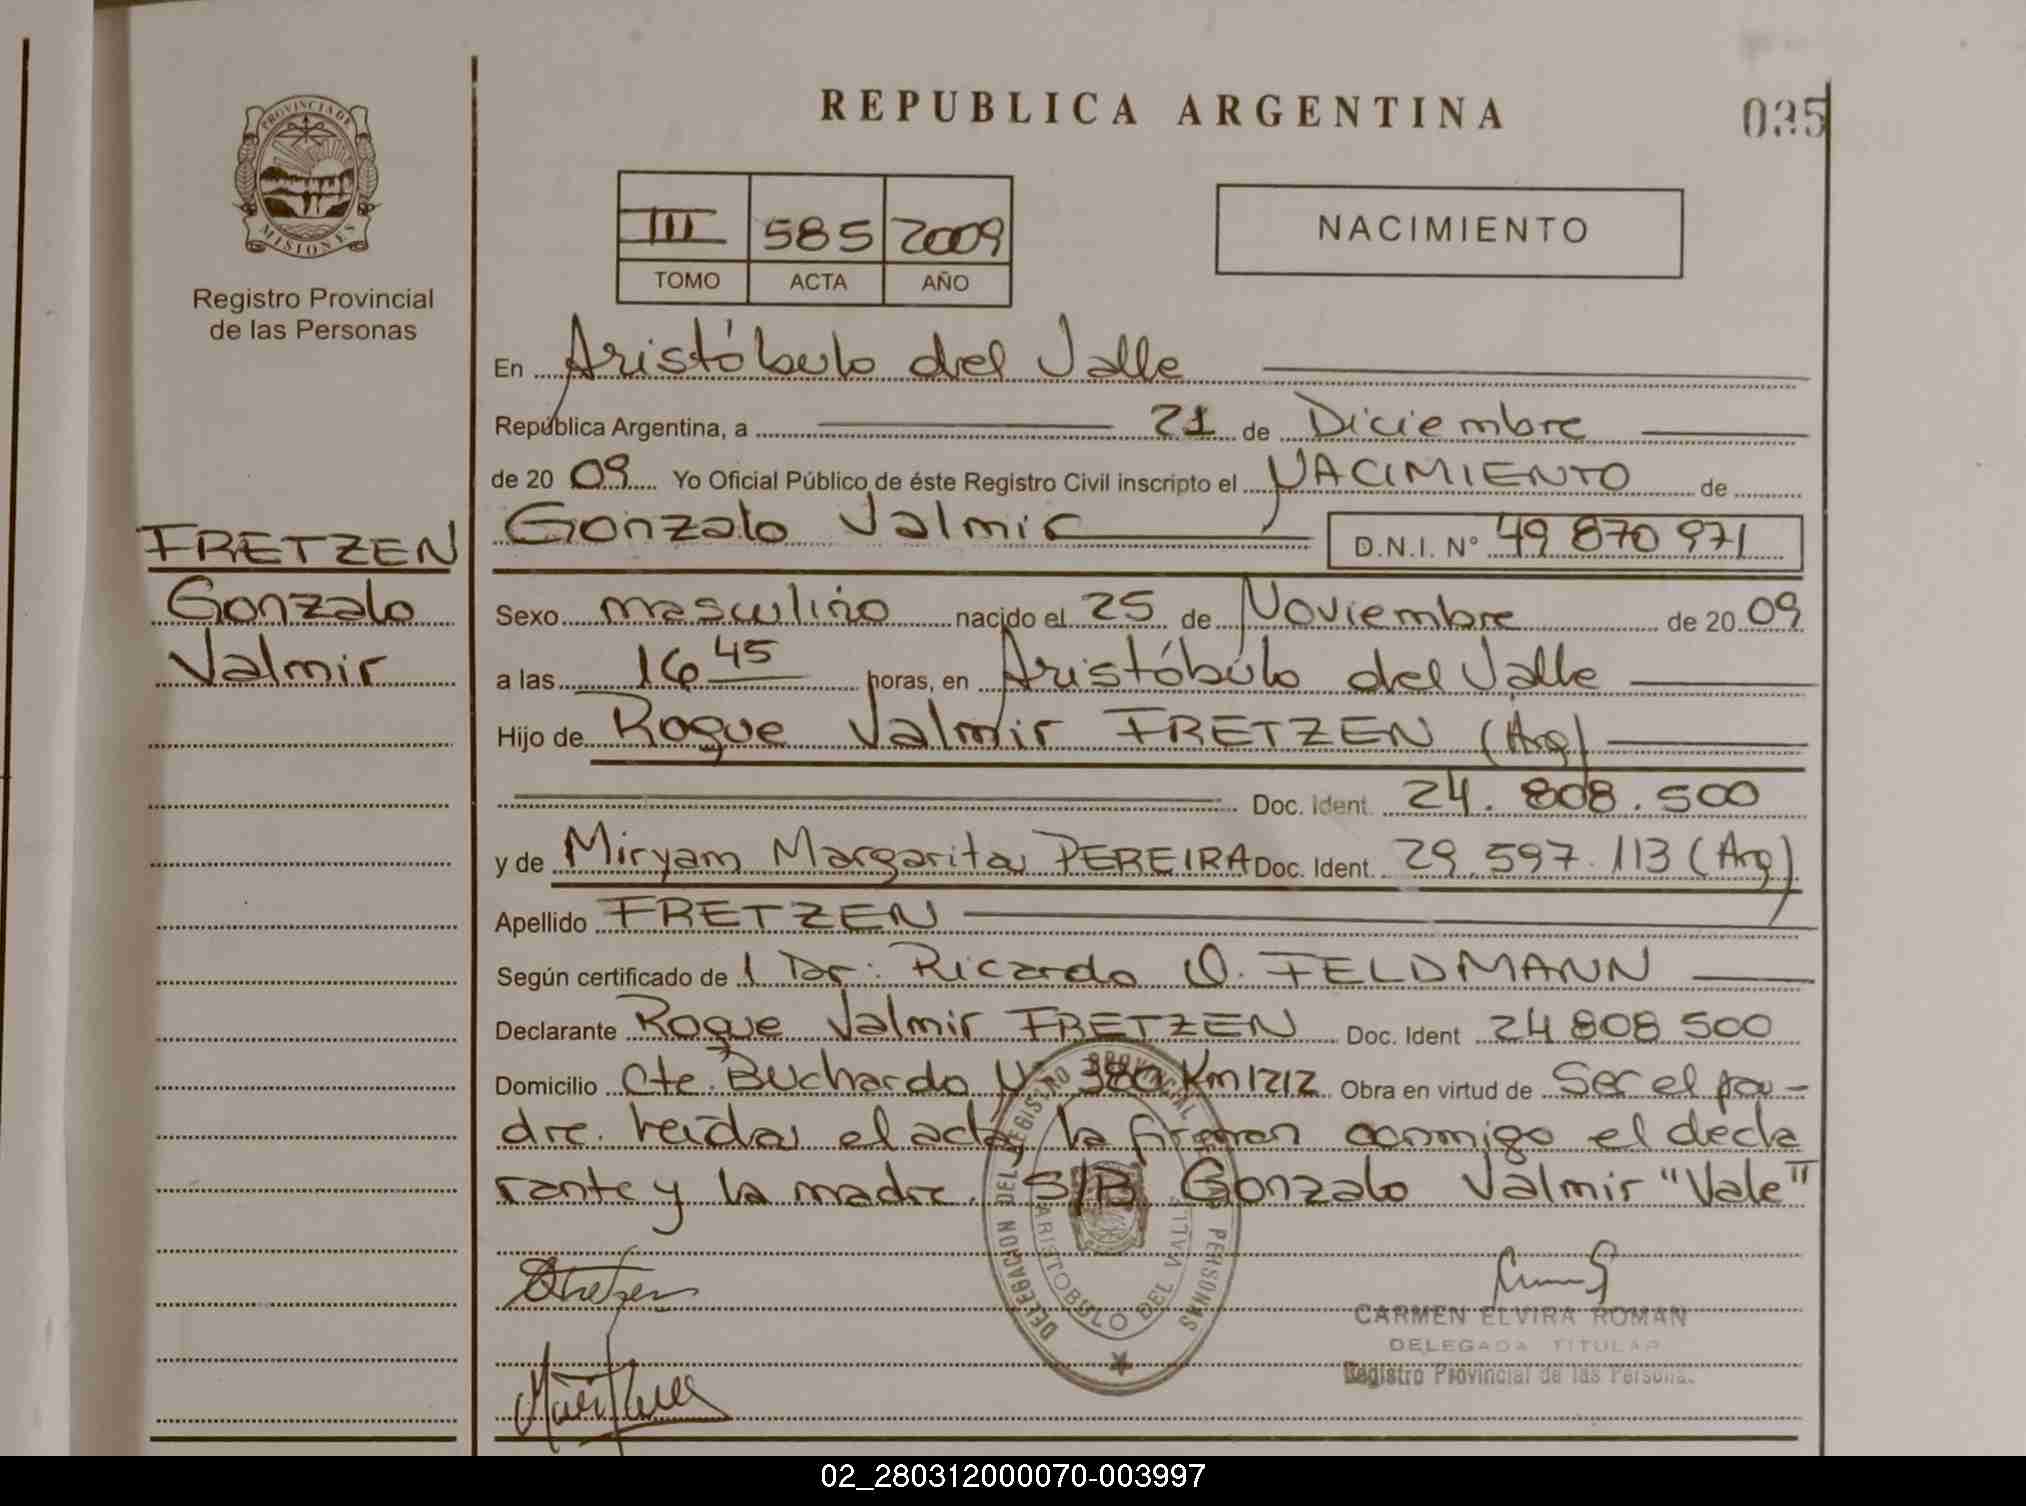 REPUBLICA ARGENTINA
035
PROVINCIA DE MISIONES
Registro Provincial
de las Personas
III 585 2009
TOMO ACTA AÑO
NACIMIENTO
FRETZEN
Gonzalo
Valmir
En Aristóbulo del Valle
República Argentina, a 21 de Diciembre
de 2009 Yo Oficial Público de éste Registro Civil inscripto el NACIMIENTO de
Gonzalo Valmir D.N.I. Nº 49 870 971
Sexo masculino nacido el 25 de Noviembre de 2009
a las 16 45 horas, en Aristóbulo del Valle
Hijo de Roque Valmir FRETZEN (Arg)
Doc. Ident. 24.808.500
y de Miryam Margarita PEREIRA Doc. Ident. 29.597.113 (Arg)
Apellido FRETZEN
Según certificado de 1 Dr. Ricardo O. FELDMANN
Declarante Roque Valmir FRETZEN Doc. Ident 24 808 500
Domicilio Cte. Buchardo Nº 380 Km 1212 Obra en virtud de Ser el pa-
dre. Leída el acta la firman conmigo el decla
rante y la madre. S/B Gonzalo Valmir "Vale"
DELEGACION DEL REGISTRO PROVINCIAL DE LAS PERSONAS
ARISTOBULO DEL VALLE
CARMEN ELVIRA ROMAN
DELEGADA TITULAR
Registro Provincial de las Personas
02_280312000070-003997